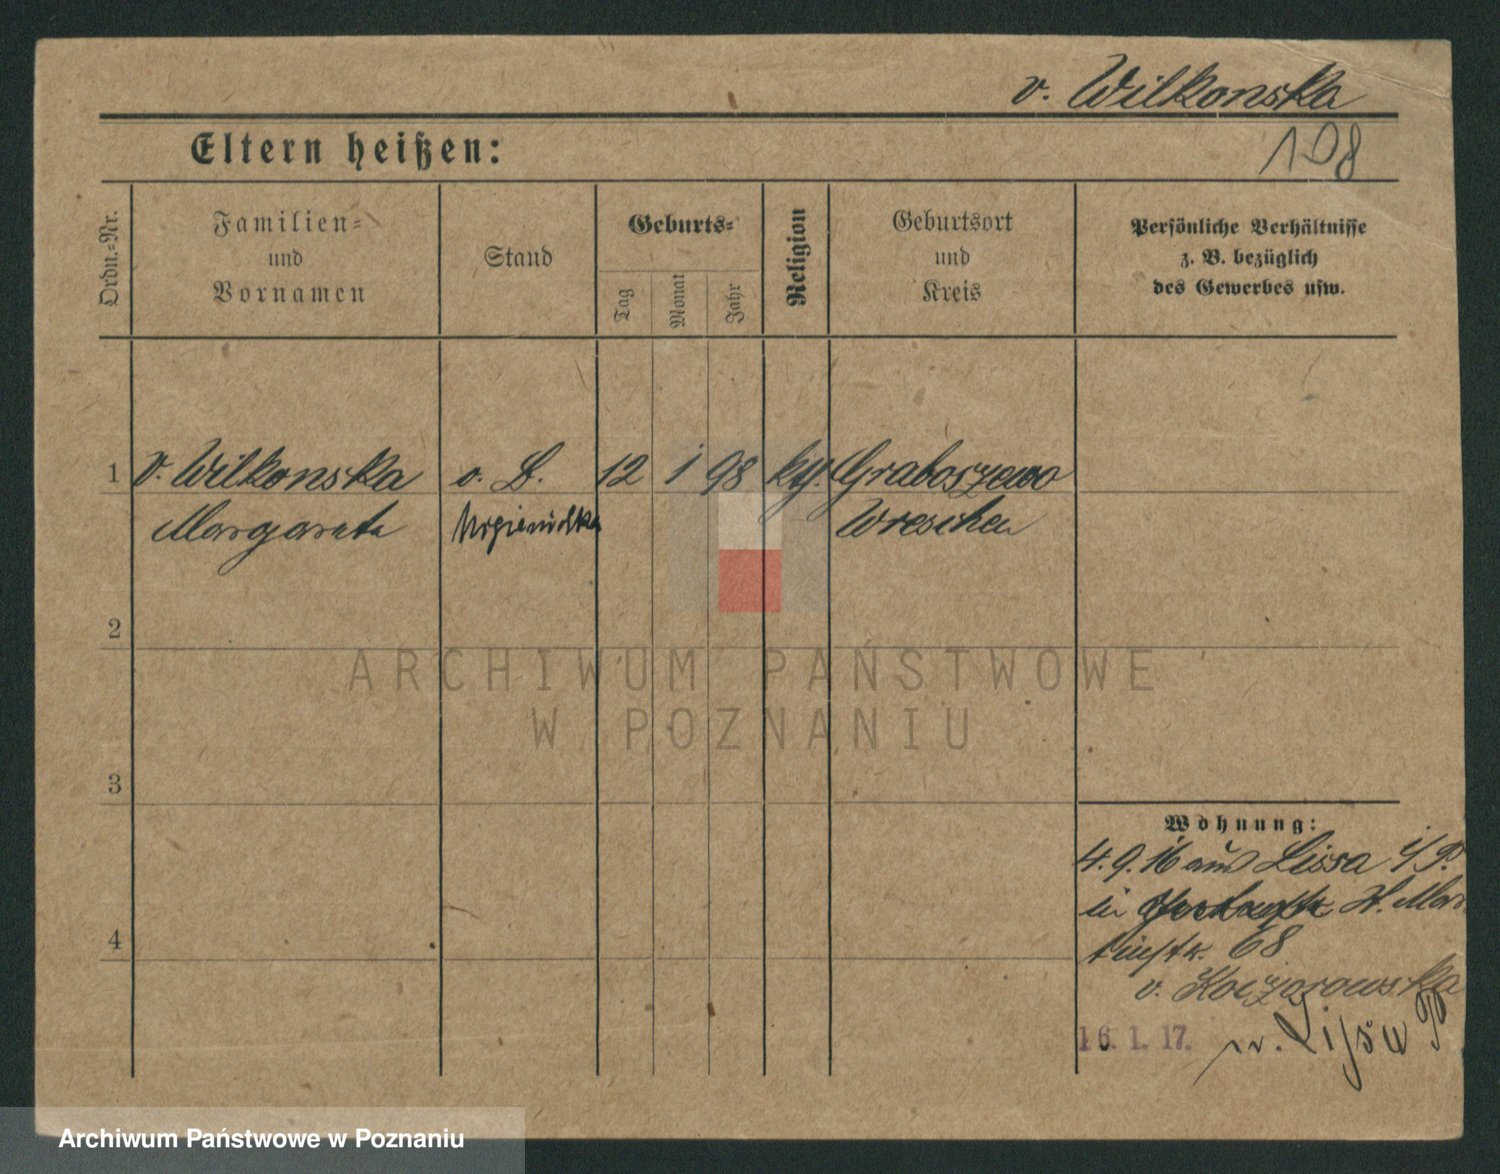 v. Wilkonska
108
Eltern heißen:
Ordn.-Nr.
Familien-
und
Vornamen
Stand
Geburts-
Tag
Monat
Jahr
Religion
Geburtsort
und
Kreis
Persönliche Verhältnisse
z. B. bezüglich
des Gewerbes usw.
1 v. Wilkonska o. B. 12 1 98 kth. Graboszewo
Margarete Wreschen
2
ARCHIWUM PAŃSTWOWE
W POZNANIU
3
Wohnung:
4. 9. 16 aus Lissa i/P.
in H. Mar-
tinstr. 68
v. Koczorowska
16. 1. 17. n. Lissa P
4
Archiwum Państwowe w Poznaniu